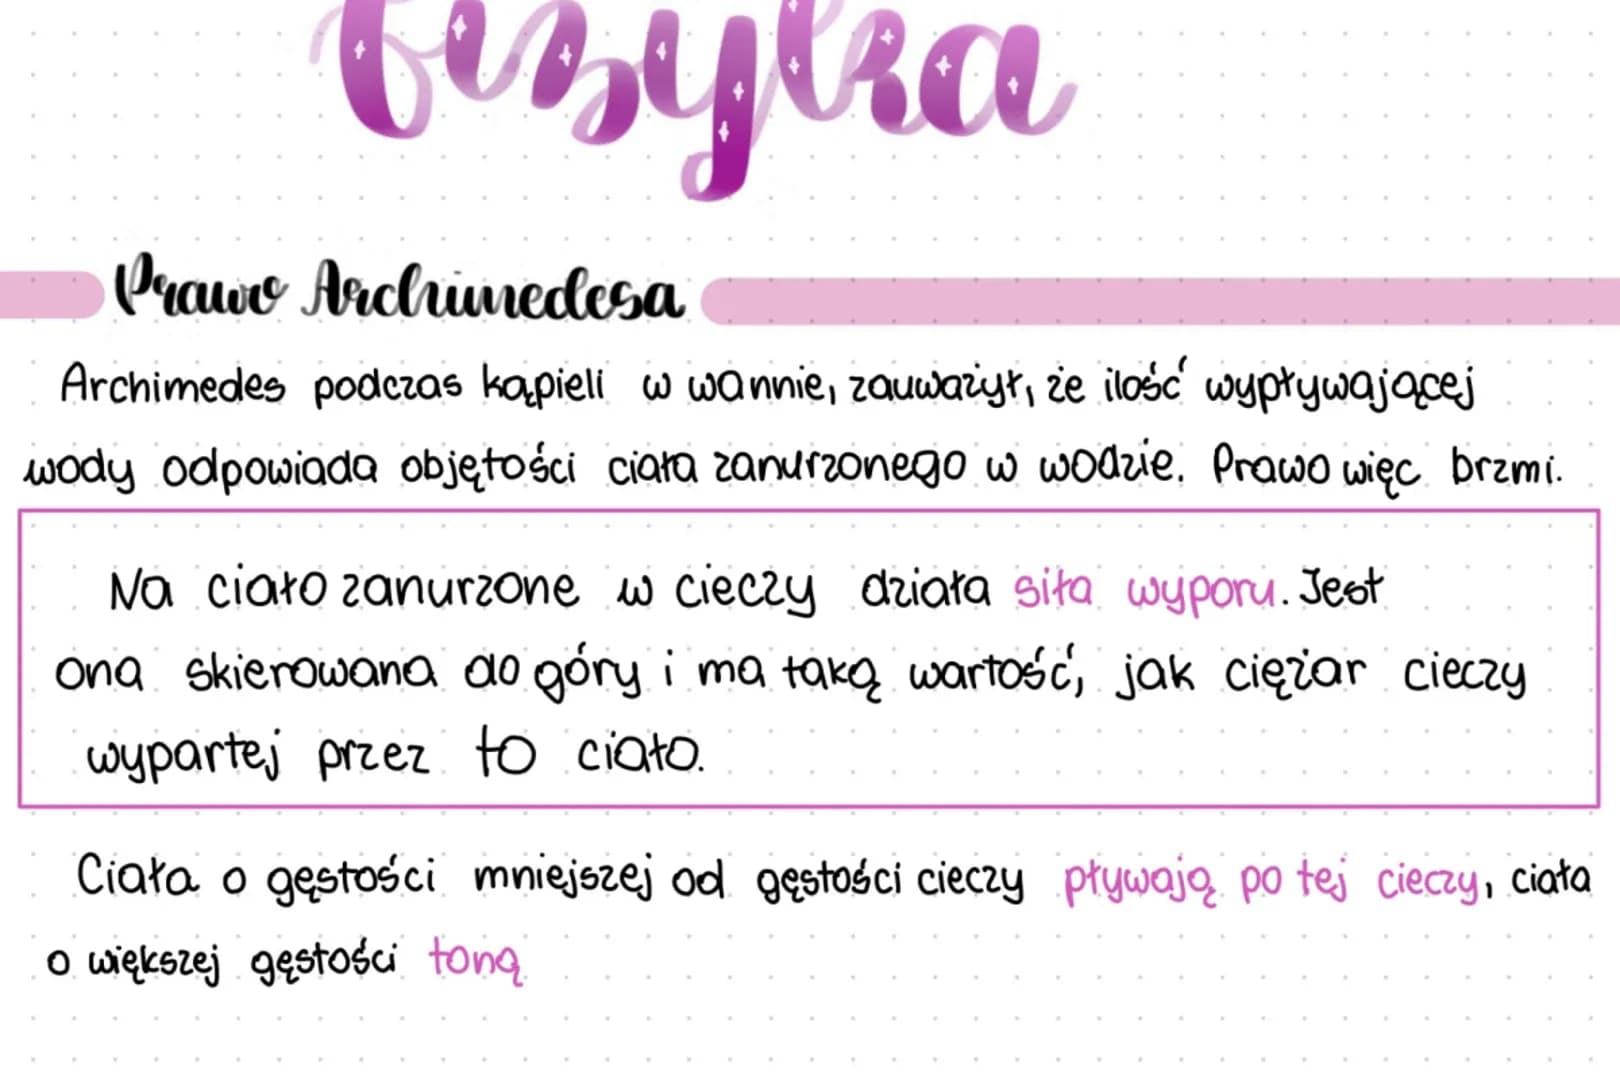 fizyka
Prawo Archimedesa
Archimedes podczas kąpieli w wannie, zauważył, że ilość wypływającej
wody odpowiada objętości ciała zanurzonego w wodzie. Prawo więc brzmi.
Na ciało zanurzone w cieczy działa siła wyporu. Jest
ona skierowana do góry i ma taką wartość, jak ciężar cieczy
wypartej przez to ciało.
Ciała o gęstości mniejszej od gęstości cieczy pływają po tej cieczy, ciała
o większej gęstości toną